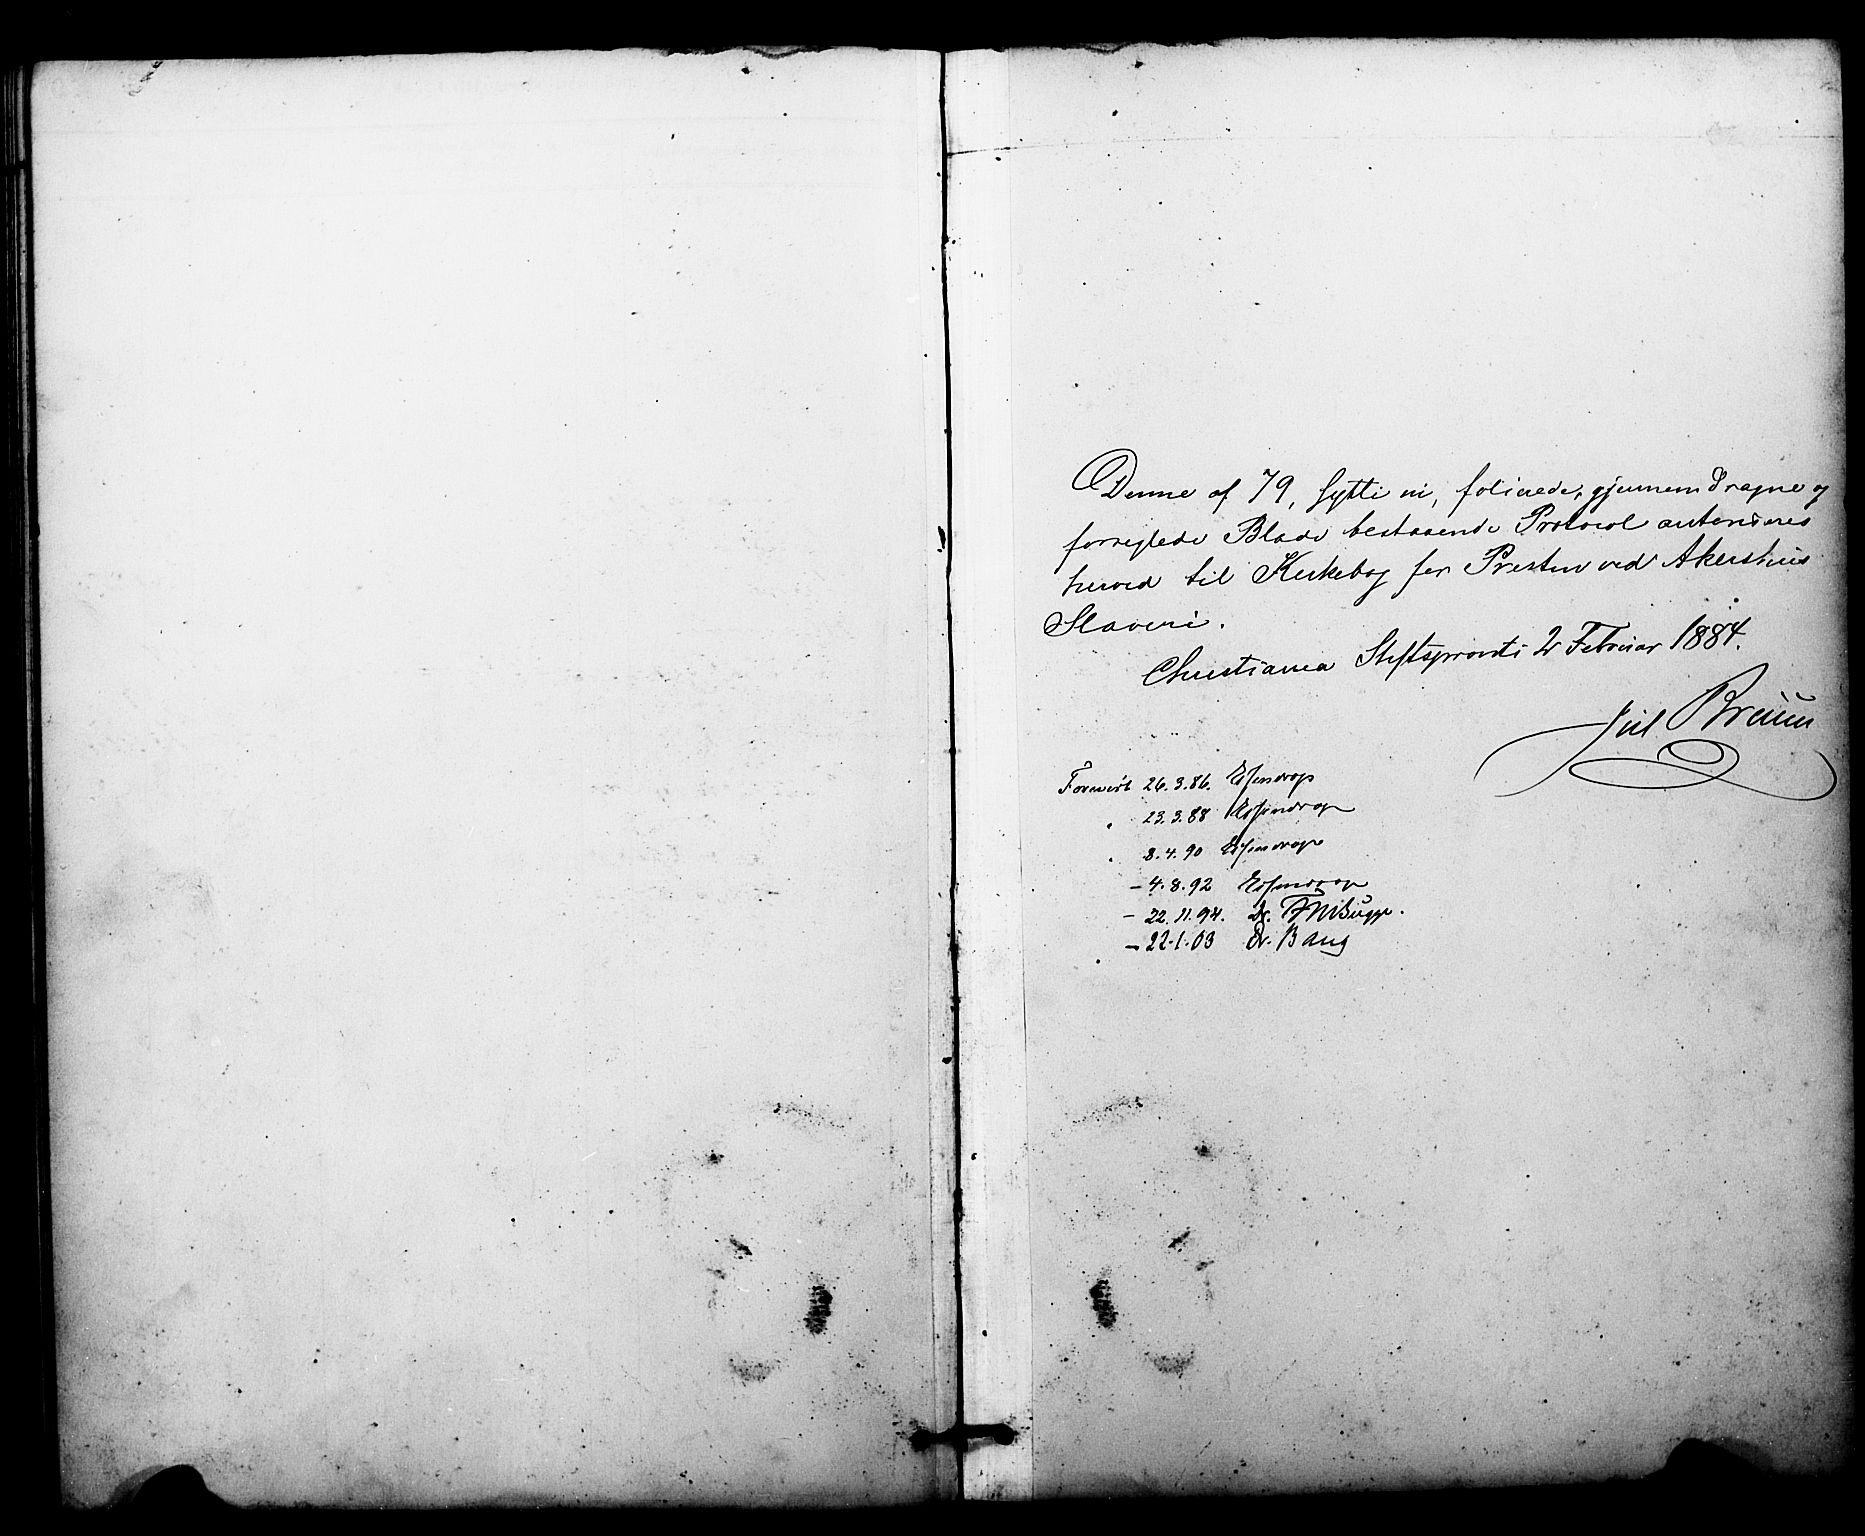 Denne af 79, sytti ni, folierede, gjennemdragne og
forseglede Blade bestaaende Protocol autoriseres
herved til Kirkebog for Presten ved Akershus
Slaveri.
Christiania Stiftsprovsti 2 Februar 1884.
Jul Bruun
Forevist 26.3.86. Essendrop
" 23.3.88 Essendrop
" 8.4.90 Essendrop
- 4.8.92 Essendrop
- 22.11.94. Dr. FWBugge.
- 22.1.03 Dr. Bang